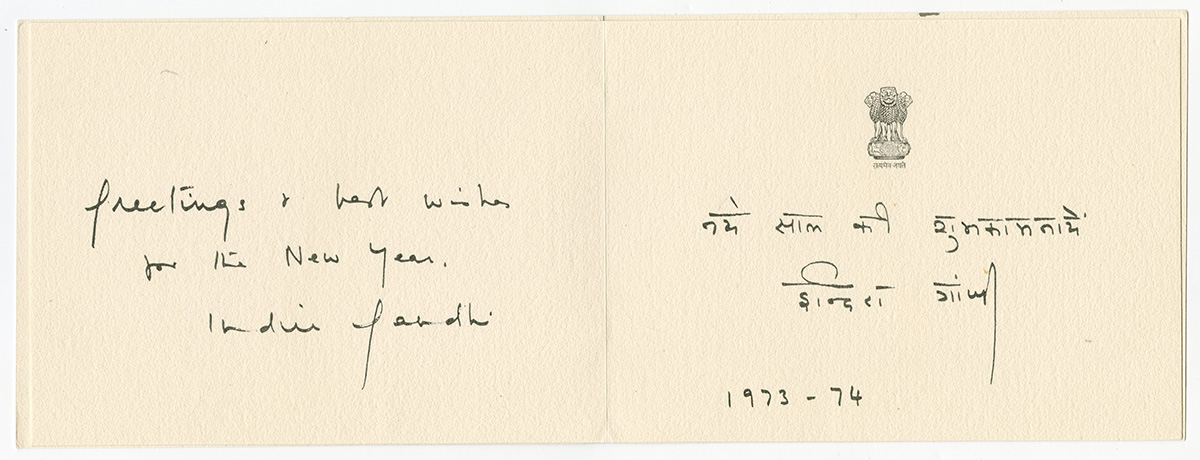 Greetings & best wishes
for the New Year.
Indira Gandhi
सत्यमेव जयते
नये साल की शुभकामनायें
इन्दिरा गांधी
1973-74